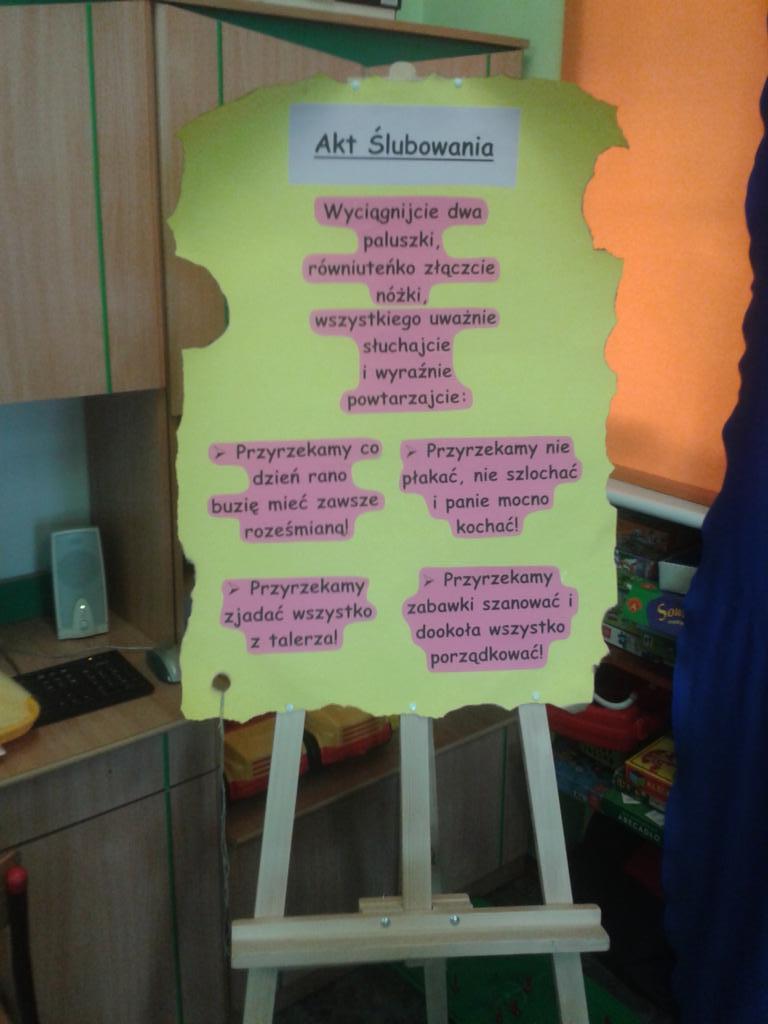 Akt Ślubowania
Wyciągnijcie dwa
paluszki,
równiuteńko złączcie
nóżki,
wszystkiego uważnie
słuchajcie
i wyraźnie
powtarzajcie:
➢ Przyrzekamy co
dzień rano
buzię mieć zawsze
roześmianą!
➢ Przyrzekamy nie
płakać, nie szlochać
i panie mocno
kochać!
➢ Przyrzekamy
zjadać wszystko
z talerza!
➢ Przyrzekamy
zabawki szanować i
dookoła wszystko
porządkować!
ABECADŁO